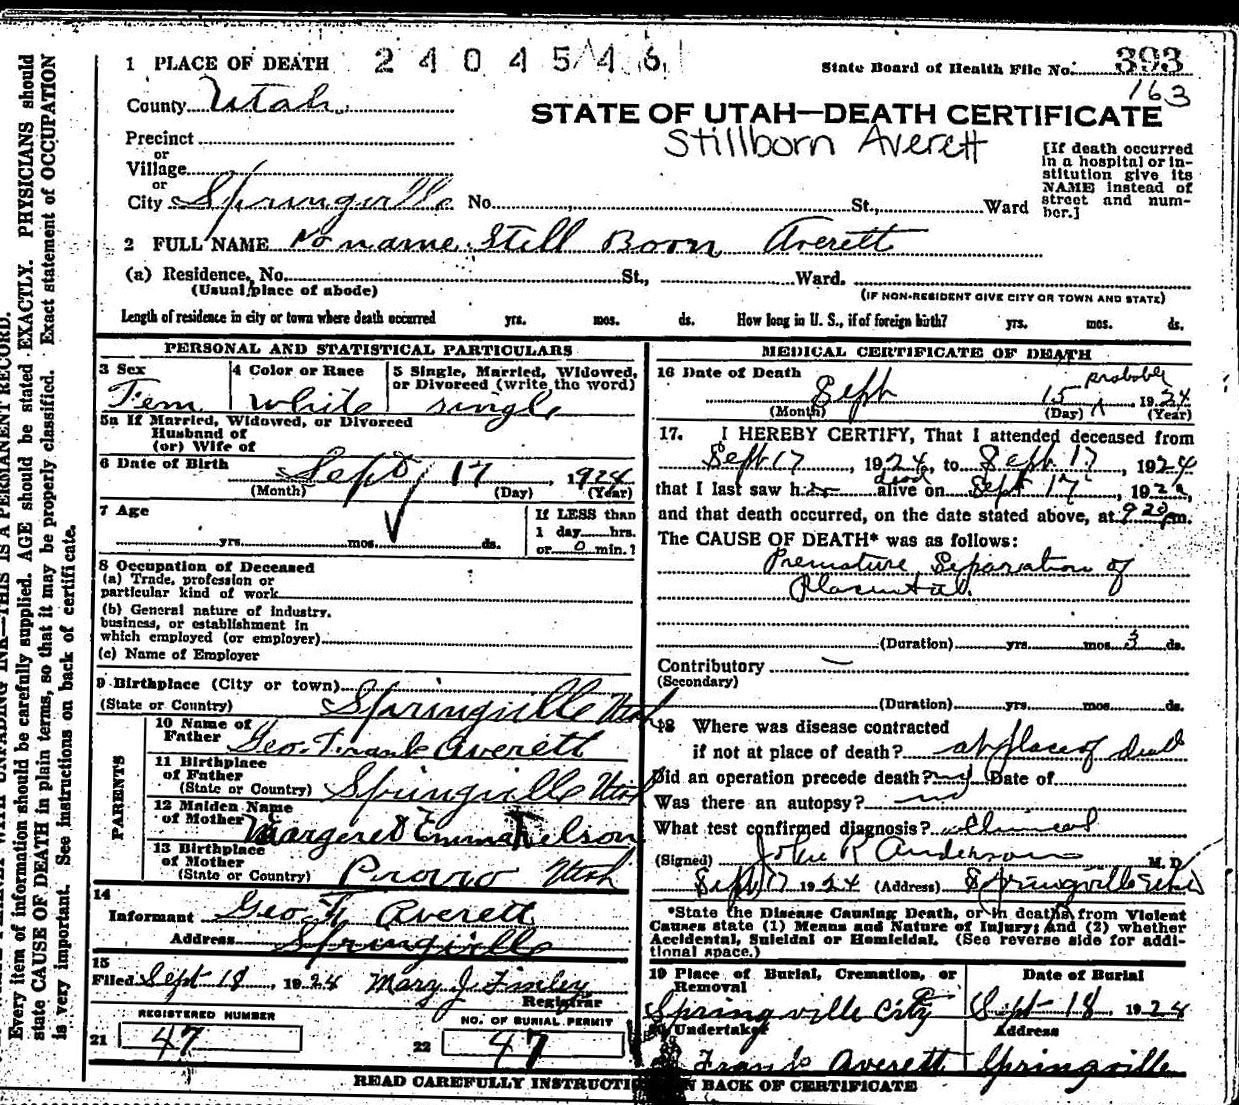 1 PLACE OF DEATH 2 4 0 4 5 4 6
State Board of Health File No. 393
163
County Utah
STATE OF UTAH—DEATH CERTIFICATE
Stillborn Averett
Precinct
or
Village
or
City Springville No. St., Ward
[If death occurred
in a hospital or in-
stitution give its
NAME instead of
street and num-
ber.]
2 FULL NAME No name Still Born Averett
(a) Residence, No. St., Ward.
(Usual place of abode) (IF NON-RESIDENT GIVE CITY OR TOWN AND STATE)
Length of residence in city or town where death occurred yrs. mos. ds. How long in U. S., if of foreign birth? yrs. mos. ds.
PERSONAL AND STATISTICAL PARTICULARS
3 Sex 4 Color or Race 5 Single, Married, Widowed,
or Divorced (write the word)
Fem White Single
5a If Married, Widowed, or Divorced
Husband of
(or) Wife of
6 Date of Birth Sept 17, 1924
(Month) (Day) (Year)
7 Age If LESS than
1 day hrs.
yrs. mos. ds. or 0 min.?
8 Occupation of Deceased
(a) Trade, profession or
particular kind of work
(b) General nature of industry,
business, or establishment in
which employed (or employer)
(c) Name of Employer
9 Birthplace (City or town)
(State or Country) Springville Utah
PARENTS
10 Name of
Father Geo. Frank Averett
11 Birthplace
of Father
(State or Country) Springville Utah
12 Maiden Name
of Mother Margeret Emma Nelson
13 Birthplace
of Mother
(State or Country) Provo Utah
14
Informant Geo F. Averett
Address Springville
15
Filed Sept 18, 1924 Mary J Finley
Registrar
REGISTERED NUMBER NO. OF BURIAL PERMIT
21 47 22 47
MEDICAL CERTIFICATE OF DEATH
16 Date of Death Sept 15 probably 1924
(Month) (Day) (Year)
17. I HEREBY CERTIFY, That I attended deceased from
Sept 17, 1924, to Sept 17, 1924
dead
that I last saw h alive on Sept 17, 192
and that death occurred, on the date stated above, at 9 20 m.
The CAUSE OF DEATH* was as follows:
Premature Separation of
Placenta
(Duration) yrs. mos. 3 ds.
Contributory —
(Secondary)
(Duration) yrs. mos. ds.
18 Where was disease contracted
if not at place of death? at place of death
Did an operation precede death? no Date of
Was there an autopsy? no
What test confirmed diagnosis? Clinical
(Signed) John R Anderson M. D.
Sept 17 1924 (Address) Springville Utah
*State the Disease Causing Death, or in deaths from Violent
Causes state (1) Means and Nature of Injury; and (2) whether
Accidental, Suicidal or Homicidal. (See reverse side for addi-
tional space.)
19 Place of Burial, Cremation, or Date of Burial
Removal
Springville City Sept 18, 1924
20 Undertaker Address
Frank Averett Springville
READ CAREFULLY INSTRUCTI N BACK OF CERTIFICATE
THIS IS A PERMANENT RECORD.
Every item of information should be carefully supplied. AGE should be stated EXACTLY. PHYSICIANS should
state CAUSE OF DEATH in plain terms, so that it may be properly classified. Exact statement of OCCUPATION
is very important. See instructions on back of certificate.